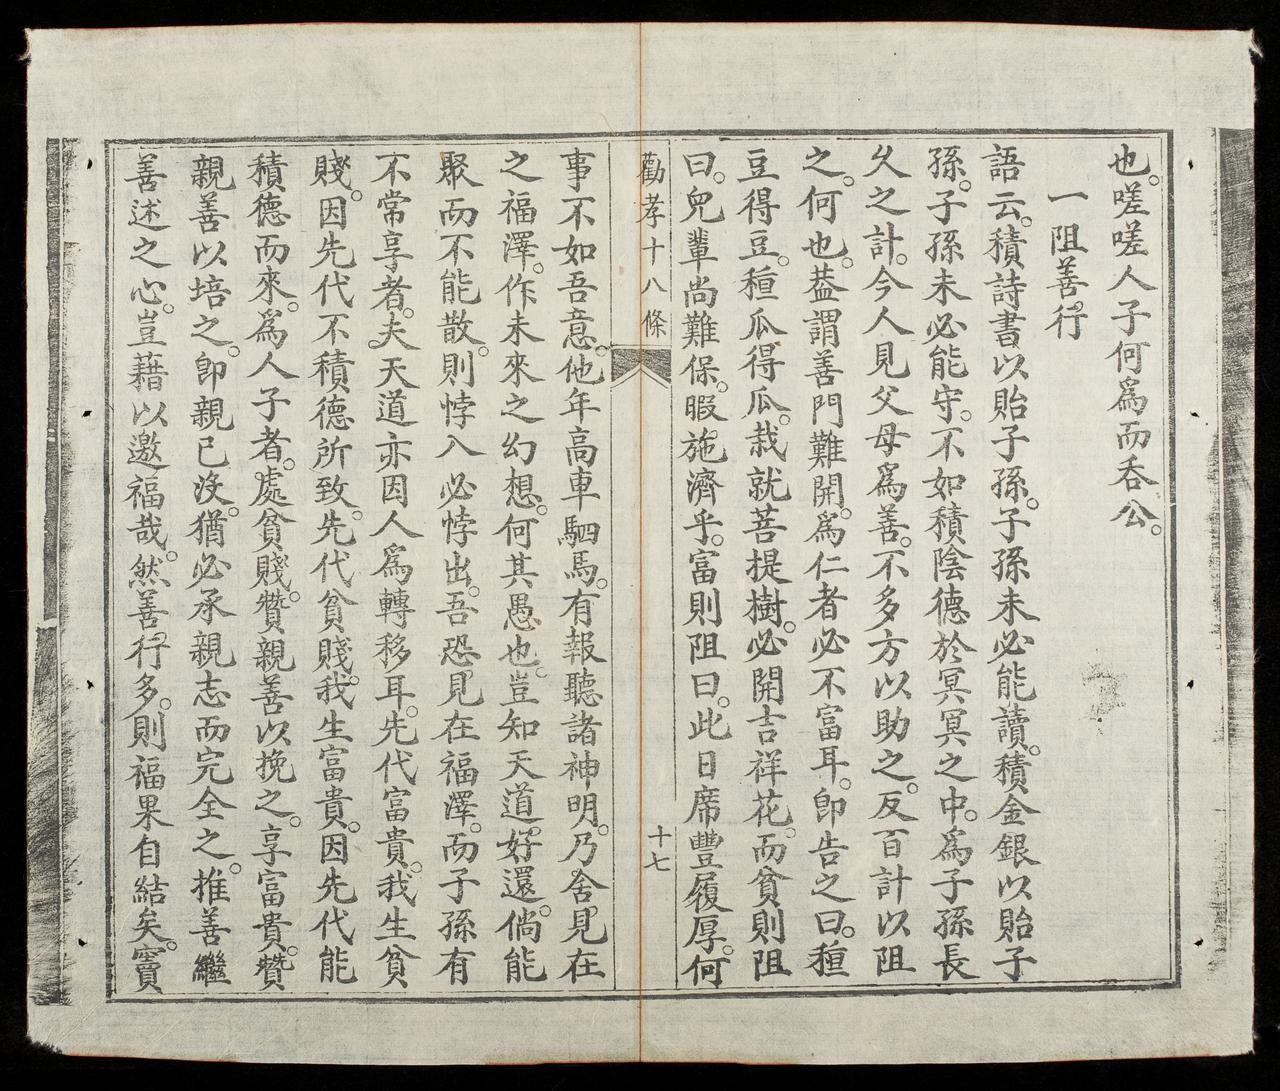 也。嗟嗟人子何爲而吞公。
一阻善行
語云。積詩書以貽子孫。子孫未必能讀。積金銀以貽子
孫。子孫未必能守。不如積陰德於冥冥之中。爲子孫長
久之計。今人見父母爲善。不多方以助之。反百計以阻
之。何也。葢謂善門難開。爲仁者必不富耳。卽告之曰。種
豆得豆。種瓜得瓜。栽就菩提樹。必開吉祥花。而貧則阻
曰。兒輩尚難保。暇施濟乎。富則阻曰。此日席豐履厚。何
勸孝十八條
十七
事不如吾意。他年高車駟馬。有報聽諸神明。乃舍見在
之福澤。作未來之幻想。何其愚也。豈知天道。好還。倘能
聚而不能散。則悖入必悖出。吾恐見在福澤。而子孫有
不常享者。夫天道亦因人爲轉移耳。先代富貴。我生貧
賤。因先代不積德所致。先代貧賤。我生富貴。因先代能
積德而來。爲人子者。處貧賤。贊親善以挽之。享富貴。贊
親善以培之。卽親已沒。猶必承親志而完全之。推善繼
善述之心。豈藉以邀福哉。然善行多。則福果自結矣。竇